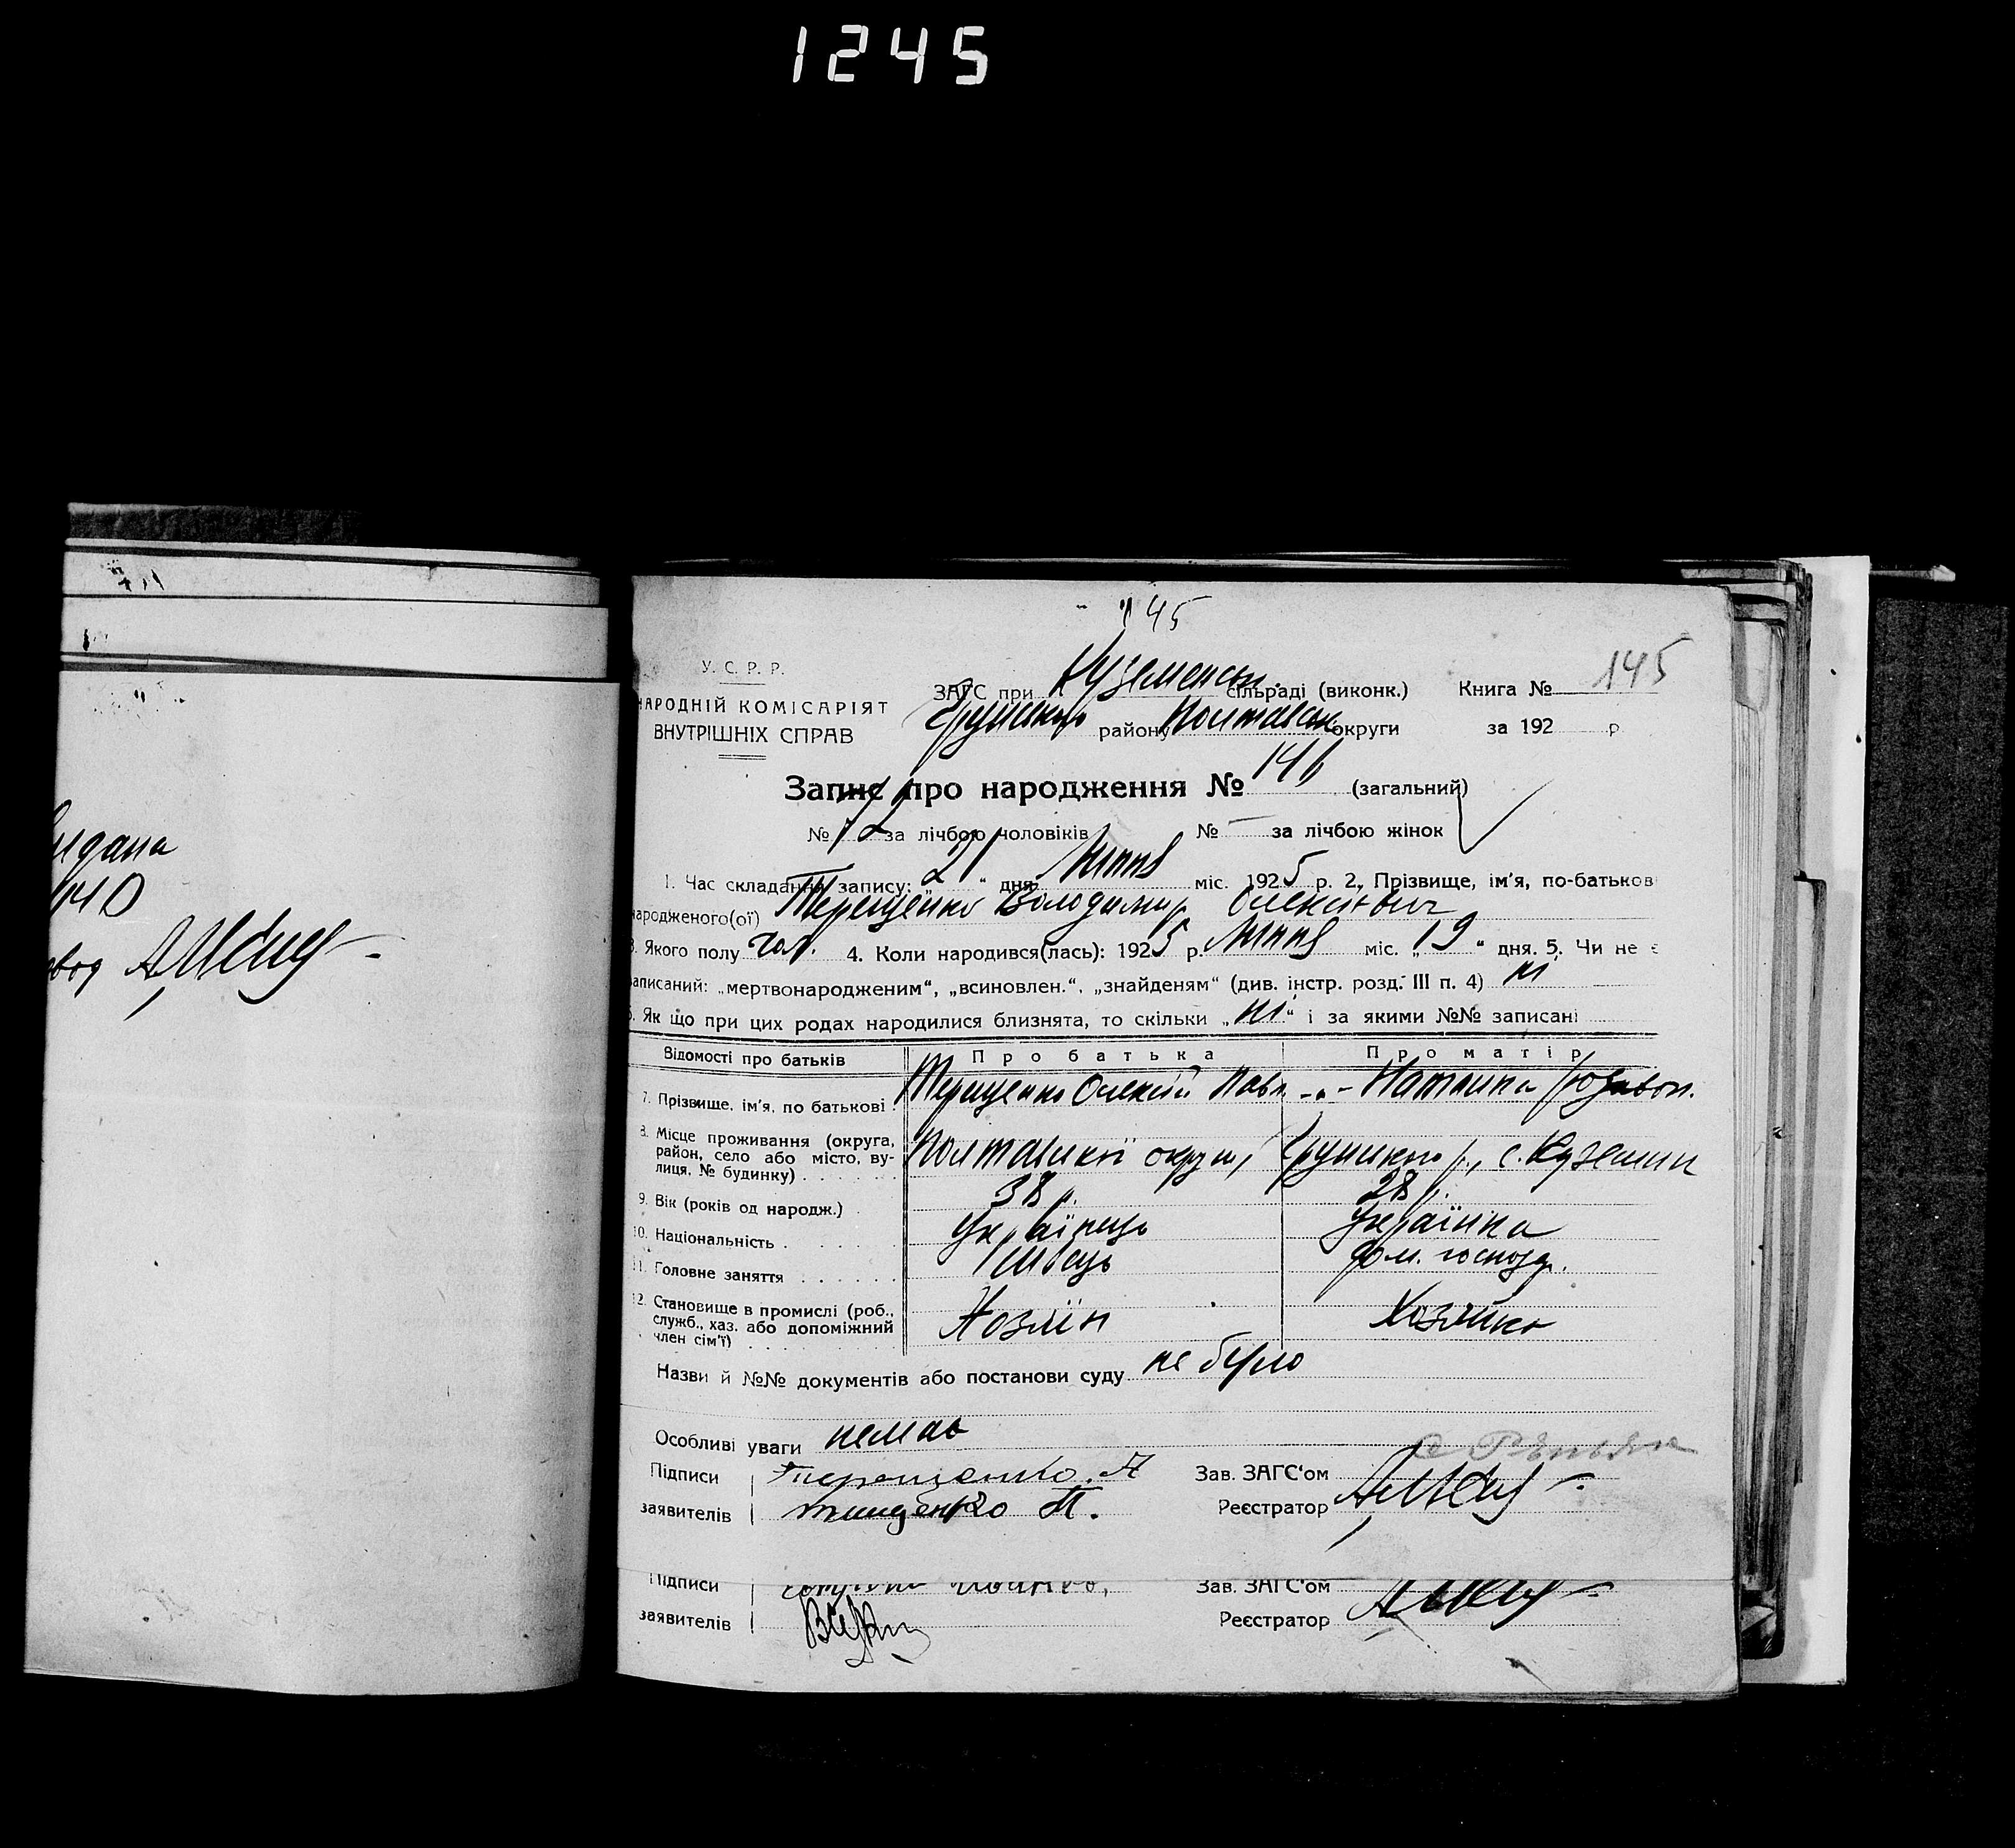 1245
145
У. С. Р. Р.
ЗАГС при Куземенськ. сільраді (виконк.) Книга № 145
НАРОДНІЙ КОМІСАРІЯТ
ВНУТРІШНІХ СПРАВ
Грунського району Полтавськ округи за 192 р
Запис про народження № 146 (загальний)
№ 72 за лічбою чоловіків № — за лічбою жінок
1. Час складання запису: „21“ дня липня міс. 1925 р. 2. Прізвище, ім'я, по-батькові
народженого(ої) Терещенко Володимир Олексієвич
3. Якого полу чол. 4. Коли народився(лась): 1925 р. липня міс. „19“ дня. 5. Чи не є
записаний: „мертвонародженим“, „всиновлен.“, „знайденям“ (див. інстр. розд. III п. 4) ні
6. Як що при цих родах народилися близнята, то скільки „ні“ і за якими №№ записані
Відомості про батьків Про батька Про матір
7. Прізвище, ім'я, по батькові. Терещенко Олексій Павл. -„- Наталка
8. Місце проживання (округа,
район, село або місто, ву-
лиця, № будинку) . . . . . . Полтавської округи, Грунського р., с. Куземин
9. Вік (років од народж.) . 38 р. 28 р.
10. Національність . . . . . Українець Українка
11. Головне заняття . . . . . . Швець дом. господ.
12. Становище в промислі (роб.,
служб., хаз. або допоміжний
член сім'ї) . . . . . . . . . Хозяїн Хозяйка
Назви й №№ документів або постанови суду не було
Особливі уваги немає
Підписи Терещенко. А Зав. ЗАГС'ом
заявителів Тищенко П. Реєстратор
Підписи Зав. ЗАГС'ом
заявителів Реєстратор